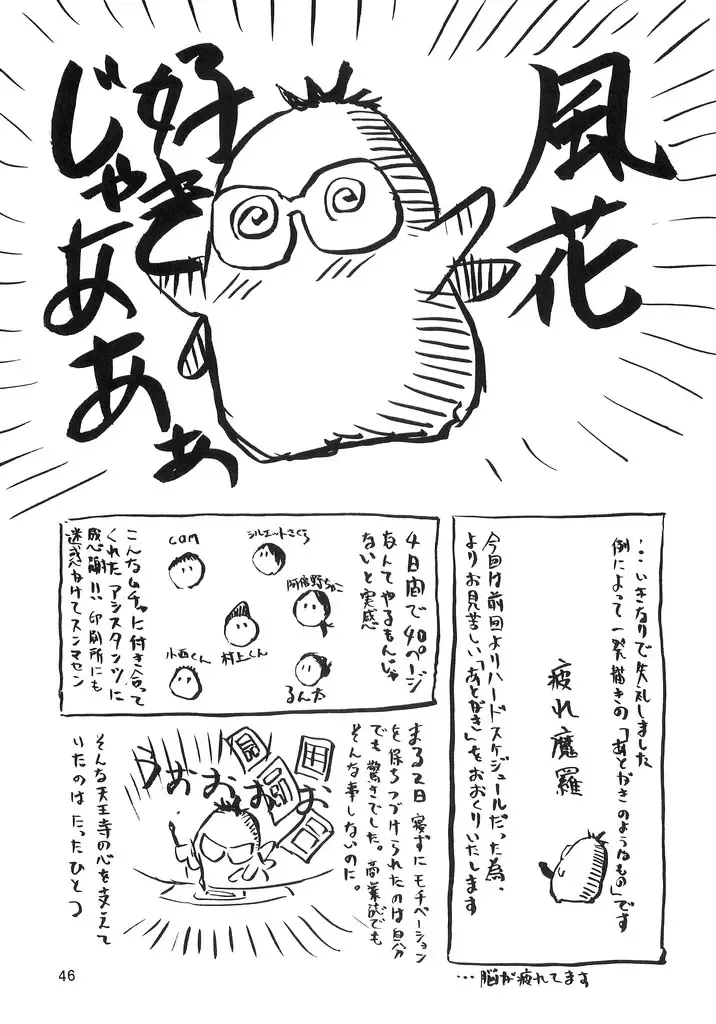 風花
好き
じゃああぁ
・・・いきなりで失礼しました
例によって一発描きの「あとがきのようなもの」です
疲れ魔羅
今回は前回よりハードスケジュールだった為、
よりお見苦しい「あとがき」をおおくりいたします
・・・脳が疲れてます
4日間で40ページ
なんてやるもんじゃ
ないと実感
シルエットさくら
com
阿倍野ちゃこ
村上くん
小西くん
るん太
こんなムチャに付き合って
くれたアシスタンツに
感謝!!印刷所にも
迷惑かけてスンマセン
まる2日寝ずにモチベーション
を保ちつづけられたのは自分
でも驚きでした。商業誌でも
そんな事しないのに。
うおおおお
そんな天王寺の心を支えて
いたのはたったひとつ
46